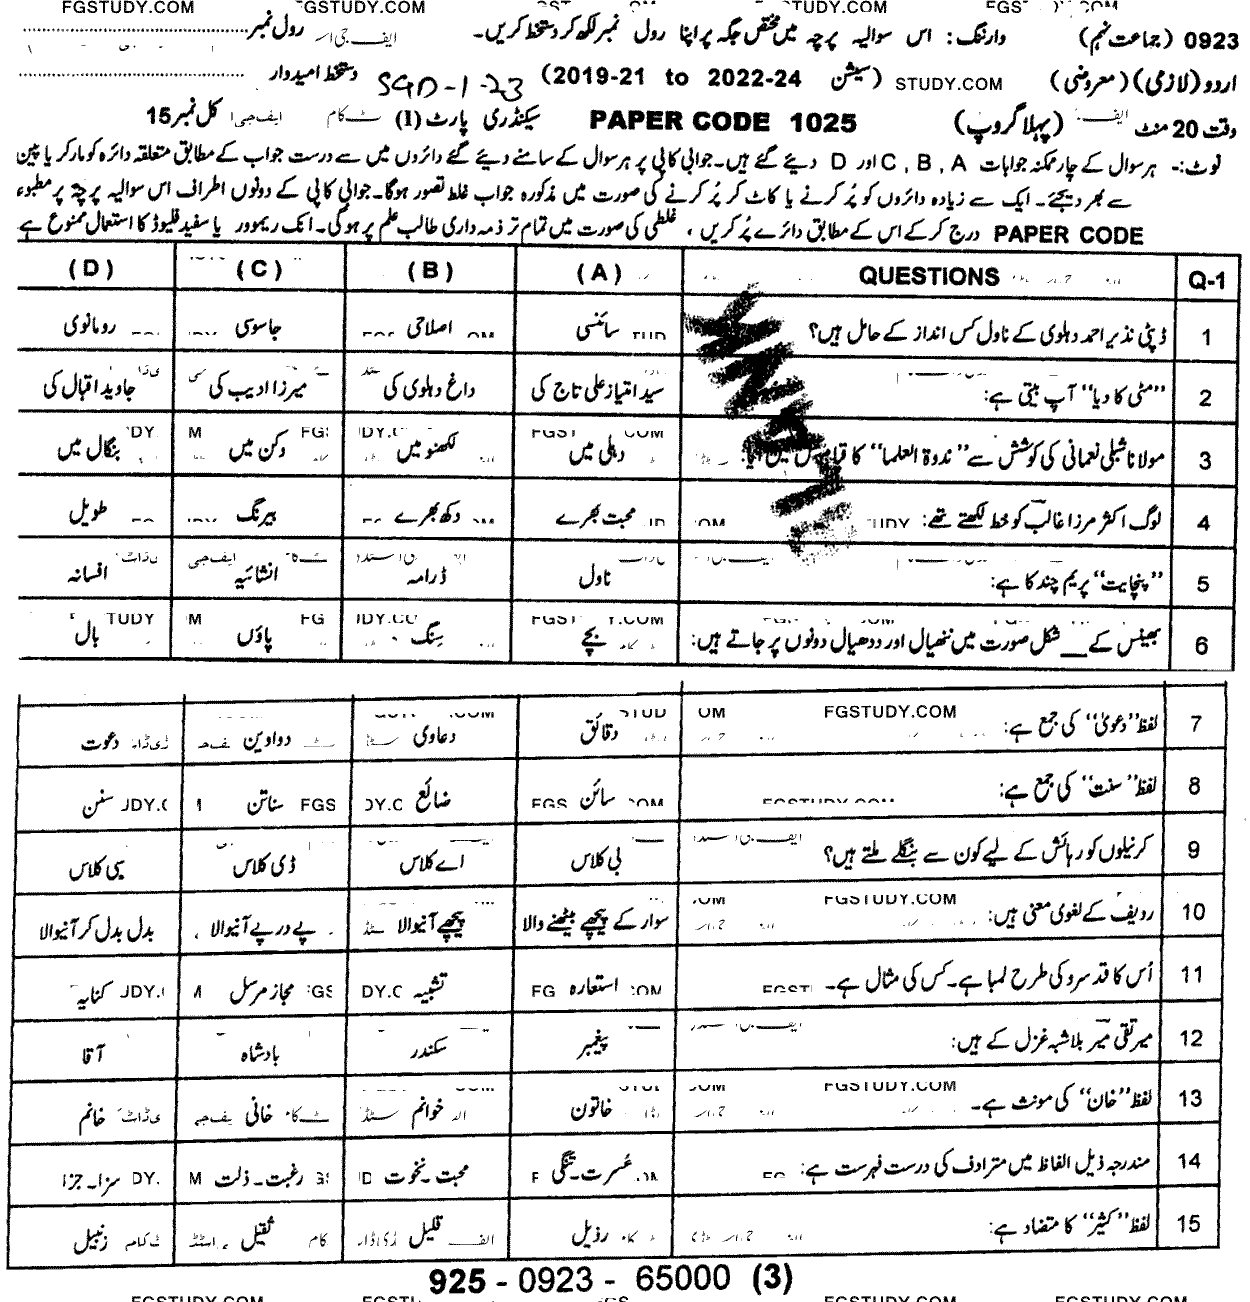 FGSTUDY.COM FGSTUDY.COM
0923 (جماعت نہم) وارننگ: اس سوالیہ پرچہ میں مختص جگہ پر اپنا رول نمبر لکھ کر دستخط کریں۔ رول نمبر
اردو (لازمی) (معروضی) STUDY.COM (سیشن 2019-21 to 2022-24) SGD-1-23 دستخط امیدوار
وقت 20 منٹ (پہلا گروپ) PAPER CODE 1025 سیکنڈری پارٹ (I) کل نمبر 15
نوٹ:- ہر سوال کے چار ممکنہ جوابات A ,B ,C اور D دیئے گئے ہیں۔ جوابی کاپی پر ہر سوال کے سامنے دیئے گئے دائروں میں سے درست جواب کے مطابق متعلقہ دائرہ کو مارکر یا پین
سے بھر دیجئے۔ ایک سے زیادہ دائروں کو پُر کرنے یا کاٹ کر پُر کرنے کی صورت میں مذکورہ جواب غلط تصور ہوگا۔ جوابی کاپی کے دونوں اطراف اس سوالیہ پرچہ پر مطبوعہ
PAPER CODE درج کر کے اس کے مطابق دائرے پُر کریں ، غلطی کی صورت میں تمام تر ذمہ داری طالب علم پر ہوگی۔ انک ریموور یا سفید فلیوڈ کا استعمال ممنوع ہے
Q-1 QUESTIONS (A) (B) (C) (D)
1 ڈپٹی نذیر احمد دہلوی کے ناول کس انداز کے حامل ہیں؟ سائنسی اصلاحی جاسوسی رومانوی
2 "مٹی کا دیا" آپ بیتی ہے: سید امتیاز علی تاج کی داغ دہلوی کی میرزا ادیب کی جاوید اقبال کی
3 مولانا شبلی نعمانی کی کوشش سے "ندوۃ العلما" کا دہلی میں لکھنو میں دکن میں بنگال میں
4 لوگ اکثر مرزا غالب کو خط لکھتے تھے: محبت بھرے دکھ بھرے بیرنگ طویل
5 "پنچایت" پریم چند کا ہے: ناول ڈرامہ انشائیہ افسانہ
6 بھینس کے ___ شکل صورت میں ننھیال اور ددھیال دونوں پر جاتے ہیں: بچے سِنگ پاؤں بال
7 لفظ "دعویٰ" کی جمع ہے: FGSTUDY.COM دقائق دعاوی دواوین دعوت
8 لفظ "سنت" کی جمع ہے: سائن ضائع سناتن سنن
9 کرنیلوں کو رہائش کے لیے کون سے بنگلے ملتے ہیں؟ بی کلاس اے کلاس ڈی کلاس سی کلاس
10 ردیف کے لغوی معنی ہیں: FGSTUDY.COM سوار کے پیچھے بیٹھنے والا پیچھے آنیوالا پے در پے آنیوالا بدل بدل کر آنیوالا
11 اُس کا قد سرو کی طرح لمبا ہے۔ کس کی مثال ہے۔ استعارہ تشبیہ مجاز مرسل کنایہ
12 میر تقی میر بلاشبہ غزل کے ہیں: پیغمبر سکندر بادشاہ آقا
13 لفظ "خان" کی مونث ہے۔ FGSTUDY.COM خاتون خوانم خانی خانم
14 مندرجہ ذیل الفاظ میں مترادف کی درست فہرست ہے: عُسرت۔تنگی محبت۔نخوت رغبت۔ذلت سزا۔جزا
15 لفظ "کثیر" کا متضاد ہے: رذیل قلیل ثقیل زنبیل
925 - 0923 - 65000 (3)
FGSTUDY.COM FGSTUDY.COM FGSTUDY.COM